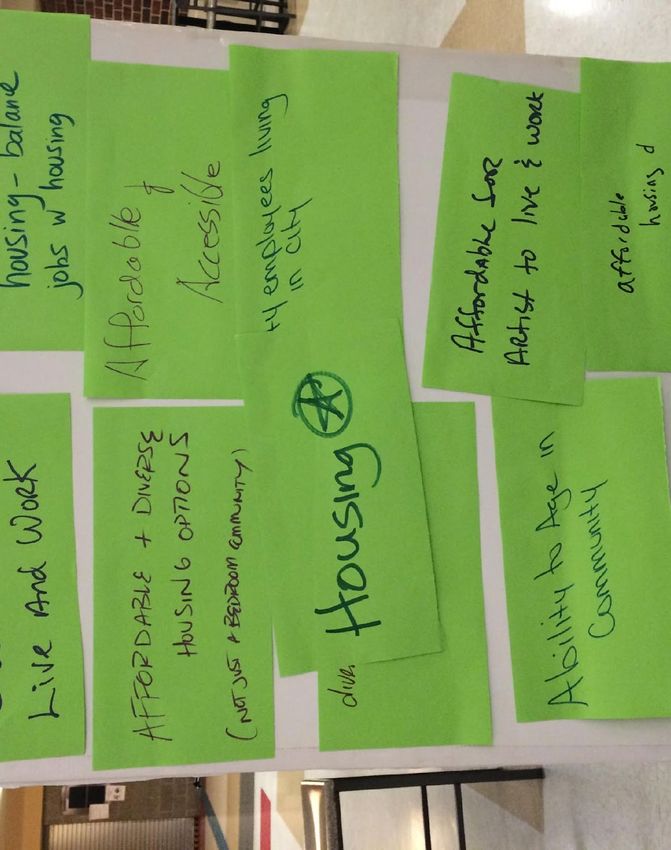 Live And Work
housing - balance
jobs w housing
AFFORDABLE + DIVERSE
HOUSING OPTIONS
(NOT JUST A BEDROOM COMMUNITY)
Affordable
&
Accessible
employees living
in city
Housing
Ability to Age in
Community
Affordable for
Artist to live & work
affordable
housing d